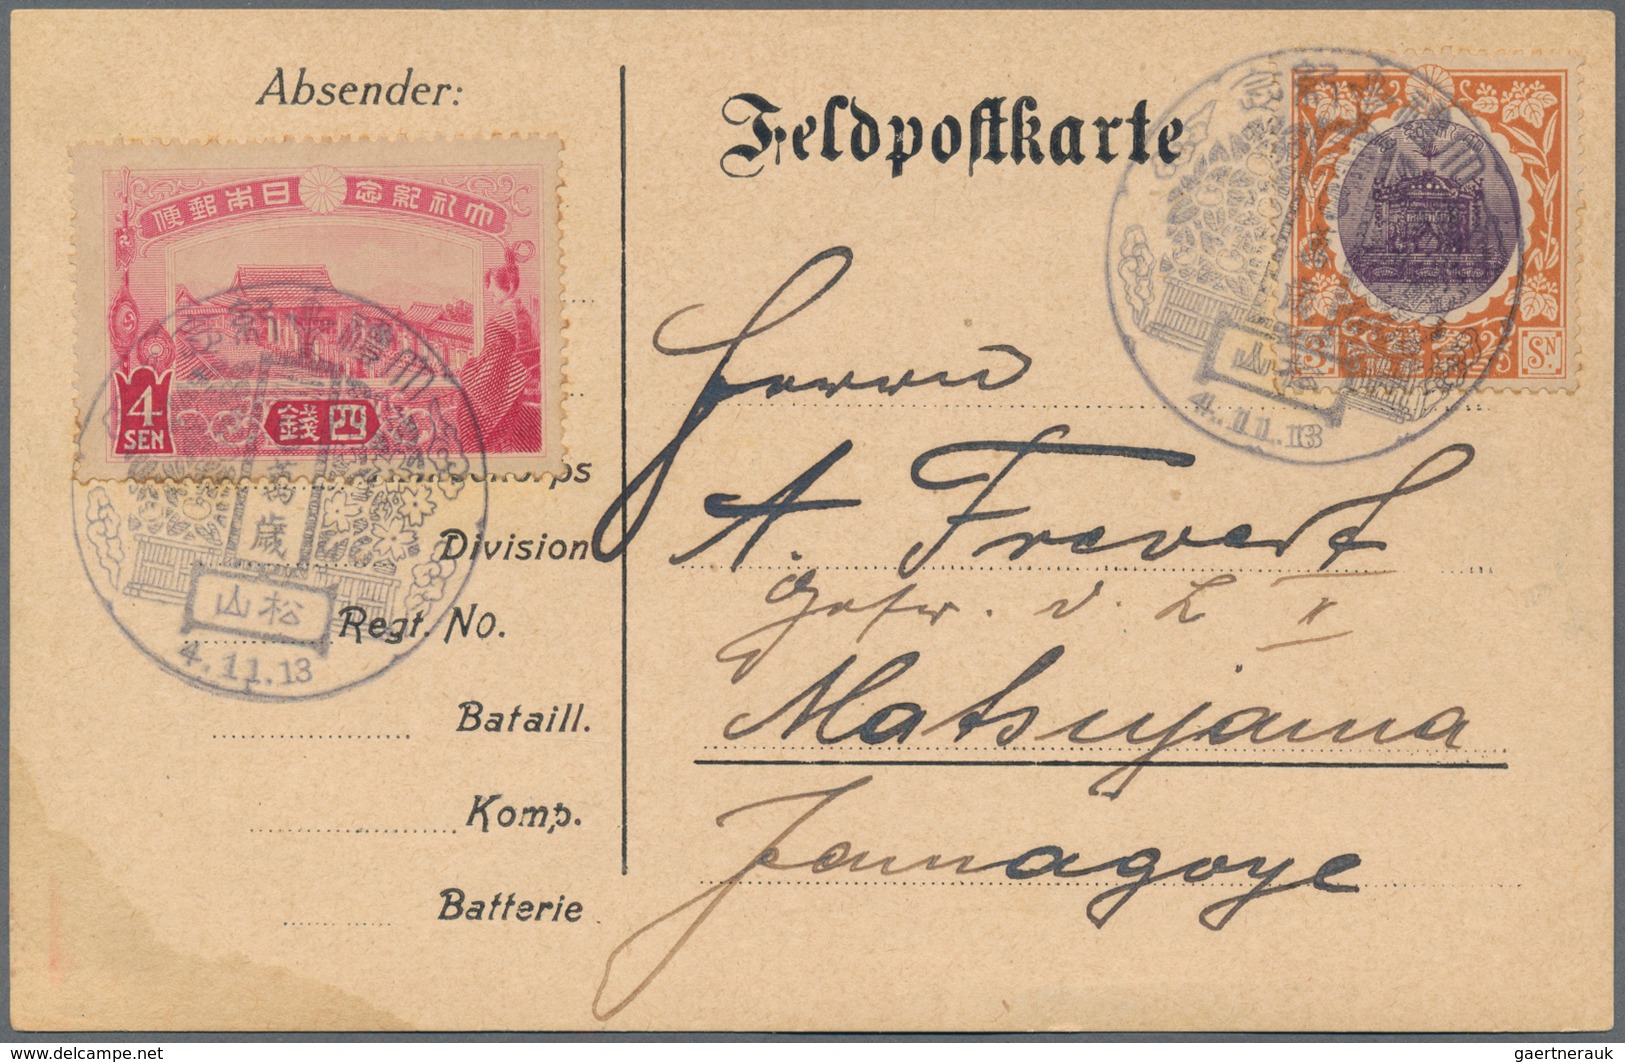 Absender:
Feldpostkarte
便郵本日 念紀礼大
4
SEN
錢四
3
SN
Herrn
A. Frevert
Gefr. d. L II
Matsuyama
Yamagoye
Division
Regt. No.
Bataill.
Komp.
Batterie
萬歳
山松
4.11.13
4.11.13
delcampe.net
gaertnerauk